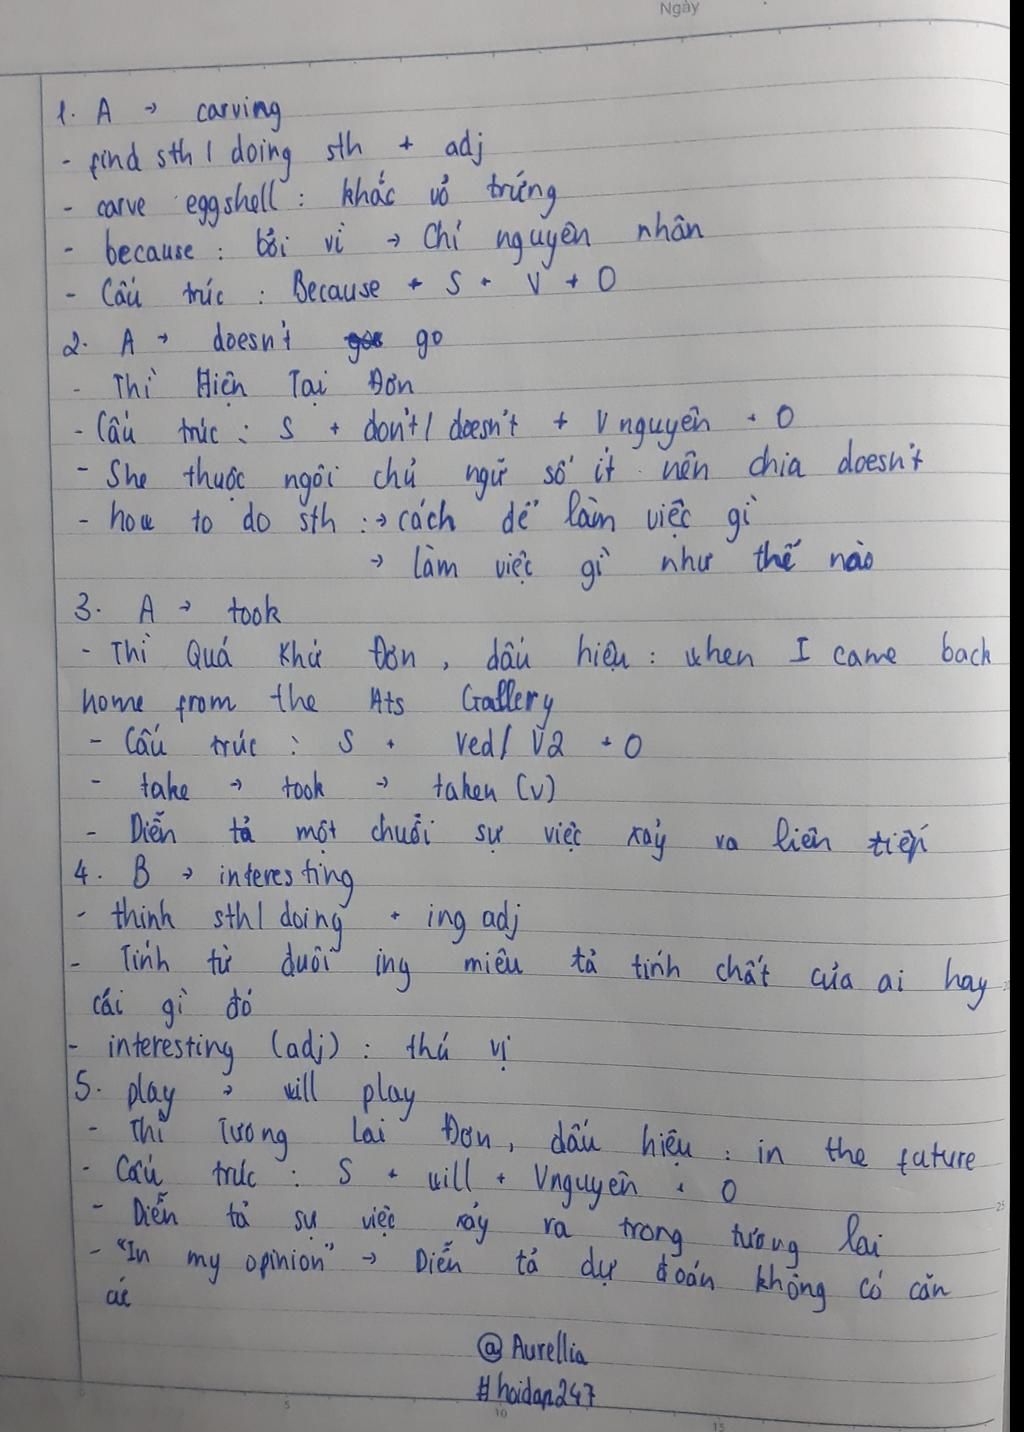 Ngày
1. A → carving
- find sth / doing sth + adj
- carve eggshell : khắc vỏ trứng
- because : bởi vì → Chỉ nguyên nhân
- Cấu trúc : Because + S + V + O
2. A → doesn't go
- Thì Hiện Tại Đơn
- Cấu trúc : S + don't / doesn't + V nguyên + O
- She thuộc ngôi chủ ngữ số ít nên chia doesn't
- how to do sth : → cách để làm việc gì
→ làm việc gì như thế nào
3. A → took
- Thì Quá Khứ Đơn , dấu hiệu : when I came back
home from the Ats Gallery
- Cấu trúc : S + Ved / V2 + O
- take → took → taken (v)
- Diễn tả một chuỗi sự việc xảy ra liên tiếp
4. B → interesting
- think sth / doing + ing adj
- Tính từ đuôi ing miêu tả tính chất của ai hay
cái gì đó
- interesting (adj) : thú vị
5. play → will play
- Thì Tương Lai Đơn , dấu hiệu : in the future
- Cấu trúc : S + will + Vnguyên + O
- Diễn tả sự việc xảy ra trong tương lai
- "In my opinion" → Diễn tả dự đoán không có căn
cứ
@Aurellia
#hoidap247
5
10
15
25